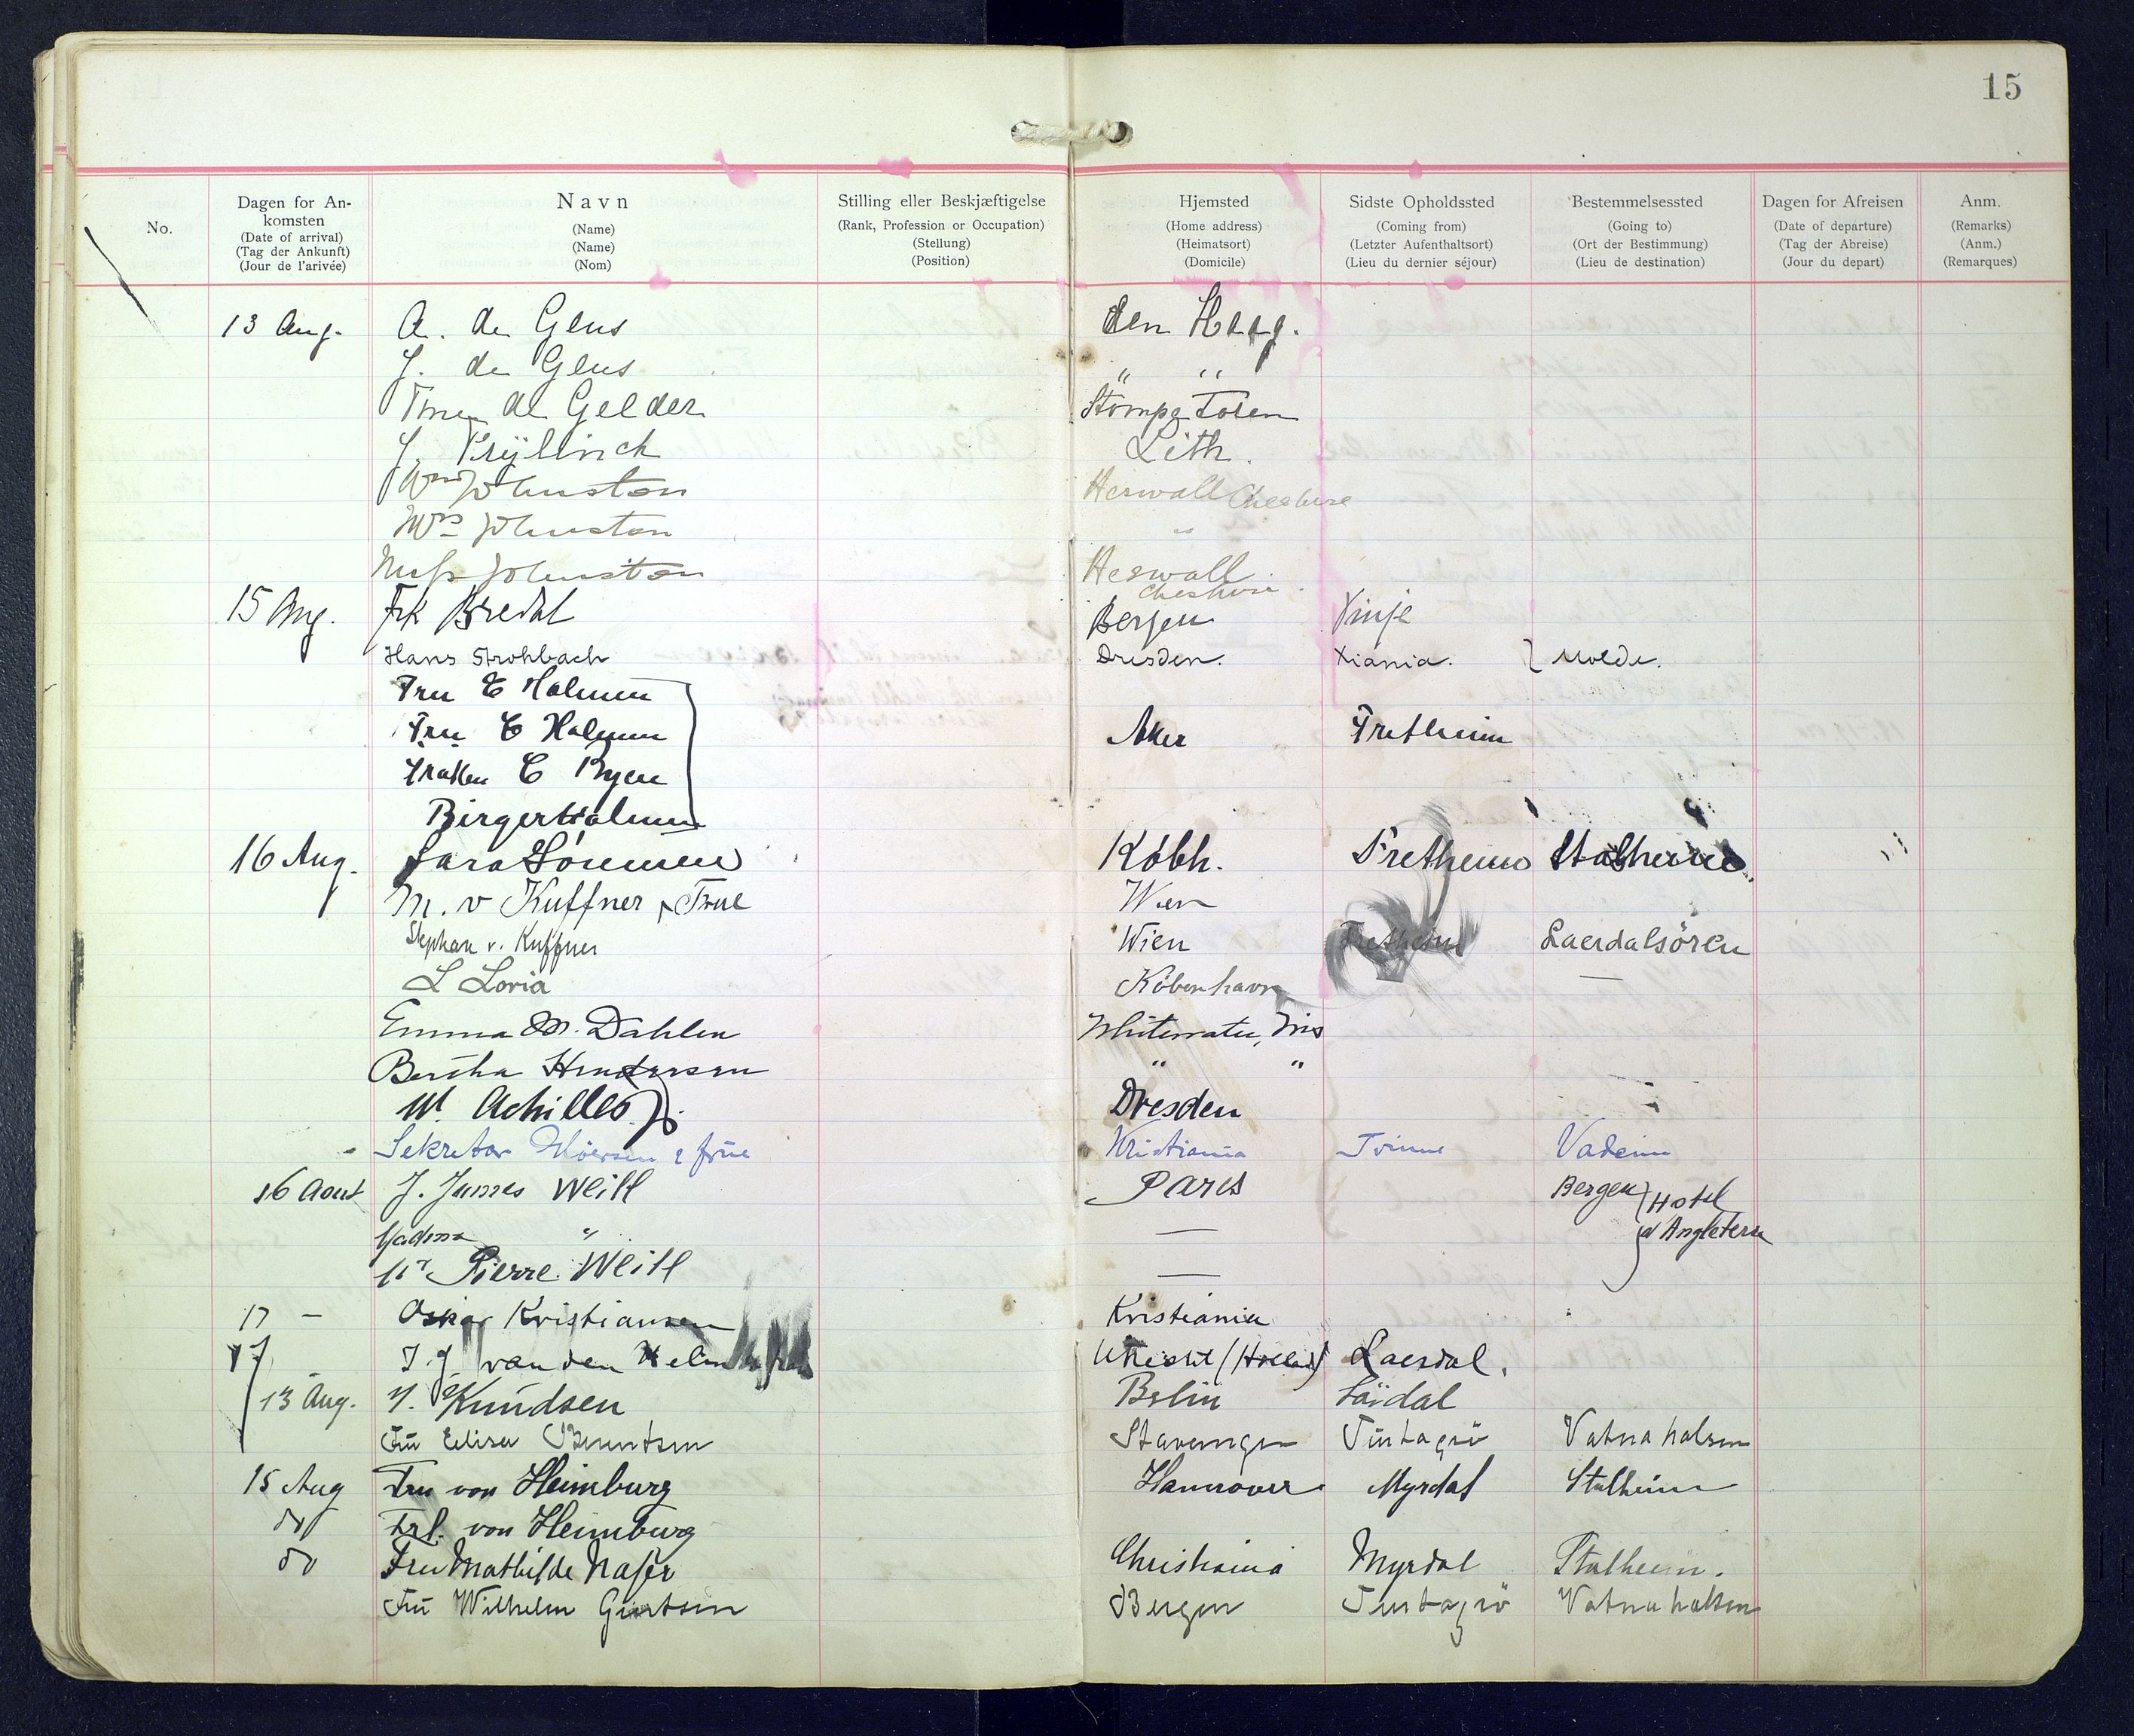 15
No.
Dagen for An-
komsten
(Date of arrival)
(Tag der Ankunft)
(Jour de l'arivée)
Navn
(Name)
(Name)
(Nom)
Stilling eller Beskjæftigelse
(Rank, Profession or Occupation)
(Stellung)
(Position)
Hjemsted
(Home address)
(Heimatsort)
(Domicile)
Sidste Opholdssted
(Coming from)
(Letzter Aufenthaltsort)
(Lieu du dernier séjour)
Bestemmelsessted
(Going to)
(Ort der Bestimmung)
(Lieu de destination)
Dagen for Afreisen
(Date of departure)
(Tag der Abreise)
(Jour du depart)
Anm.
(Remarks)
(Anm.)
(Remarques)
13 Aug. A. de Geus den Haag.
J. de Geus " "
de Gelder
J. Leth.
Wm Johnston Heswall Cheshire
Mrs Johnston "
Miss Johnston Heswall Cheshire
15 Aug. Frk Bredal Bergen Vinje
Hans Strohbach Dresden. Xiania. Molde.
Fru E Holmen
Fru C Holmen Aker Fretheim
Frøken C Byen
Birger Holmen
16 Aug. Sara Kòbh. Fretheim Stalheim.
M. v Kuffner & Frue Wien
Stephan v. Kuffner Wien Fretheim Laerdalsören
L Loria København —
Emma M. Dahlen Whitewater, Wis
Bertha " "
W. Achilles Dresden
Sekretær & frue Kristiania Tvinne Vadeim
16 Aout J. James Weill Paris Bergen Hotel
d'Angleterre
Madme " —
Mr Pierre Weill —
17 — Oskar Kristiansen Kristiania
17 J. J. van den Helm Utrecht (Holland) Laerdal.
13 Aug. Knudsen Berlin Lärdal
Fru Elisa Berentsen Stavanger Vatnahalsen
15 Aug Fru von Heimburg Hannover Myrdal Stalheim
do Frl. von Heimburg
do Fru Mathilde Christiania Myrdal Stalheim.
Fru Wilhelm Giertsen Bergen Vatnahalsen